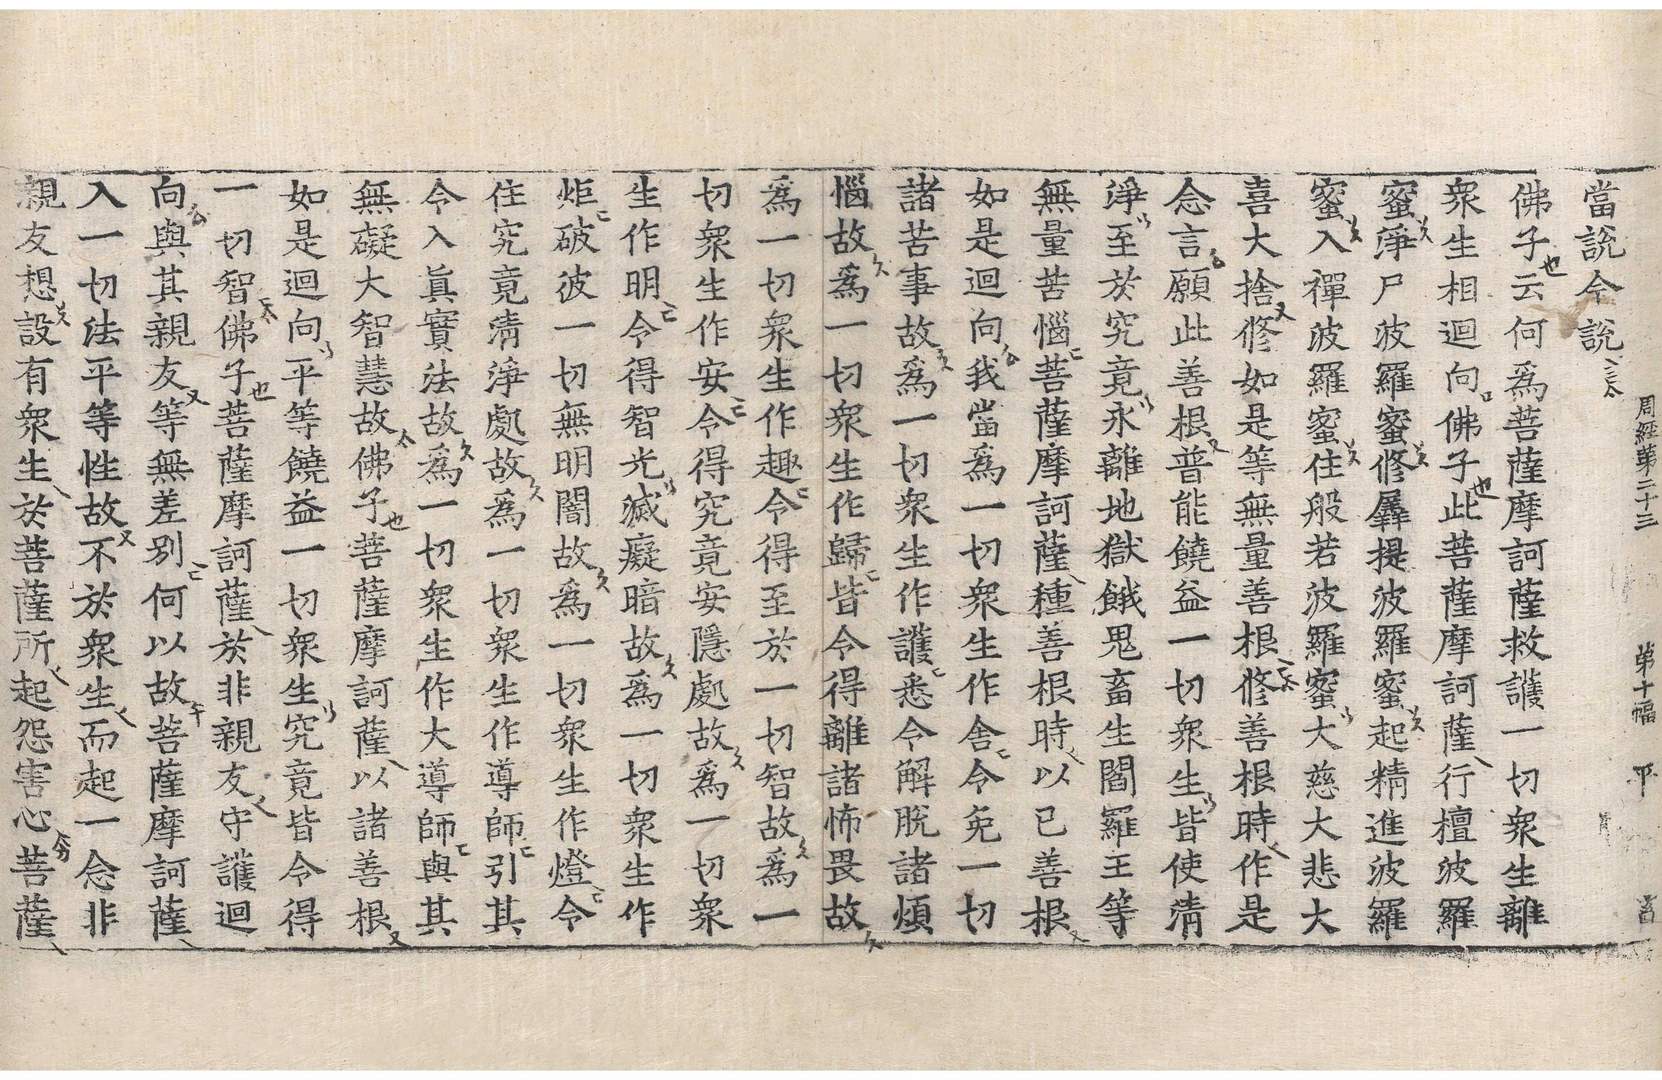 周經第二十三 第十幅 平
當說今說
佛子云何爲菩薩摩訶薩救護一切衆生離
衆生相迴向佛子此菩薩摩訶薩行檀波羅
蜜淨尸波羅蜜修羼提波羅蜜起精進波羅
蜜入禪波羅蜜住般若波羅蜜大慈大悲大
喜大捨修如是等無量善根修善根時作是
念言願此善根普能饒益一切衆生皆使清
淨至於究竟永離地獄餓鬼畜生閻羅王等
無量苦惱菩薩摩訶薩種善根時以己善根
如是迴向我當爲一切衆生作舍令免一切
諸苦事故爲一切衆生作護悉令解脫諸煩
惱故爲一切衆生作歸皆令得離諸怖畏故
爲一切衆生作趣令得至於一切智故爲一
切衆生作安令得究竟安隱處故爲一切衆
生作明令得智光滅癡暗故爲一切衆生作
炬破彼一切無明闇故爲一切衆生作燈令
住究竟清淨處故爲一切衆生作導師引其
令入眞實法故爲一切衆生作大導師與其
無礙大智慧故佛子菩薩摩訶薩以諸善根
如是迴向平等饒益一切衆生究竟皆令得
一切智佛子菩薩摩訶薩於非親友守護迴
向與其親友等無差別何以故菩薩摩訶薩
入一切法平等性故不於衆生而起一念非
親友想設有衆生於菩薩所起怨害心菩薩